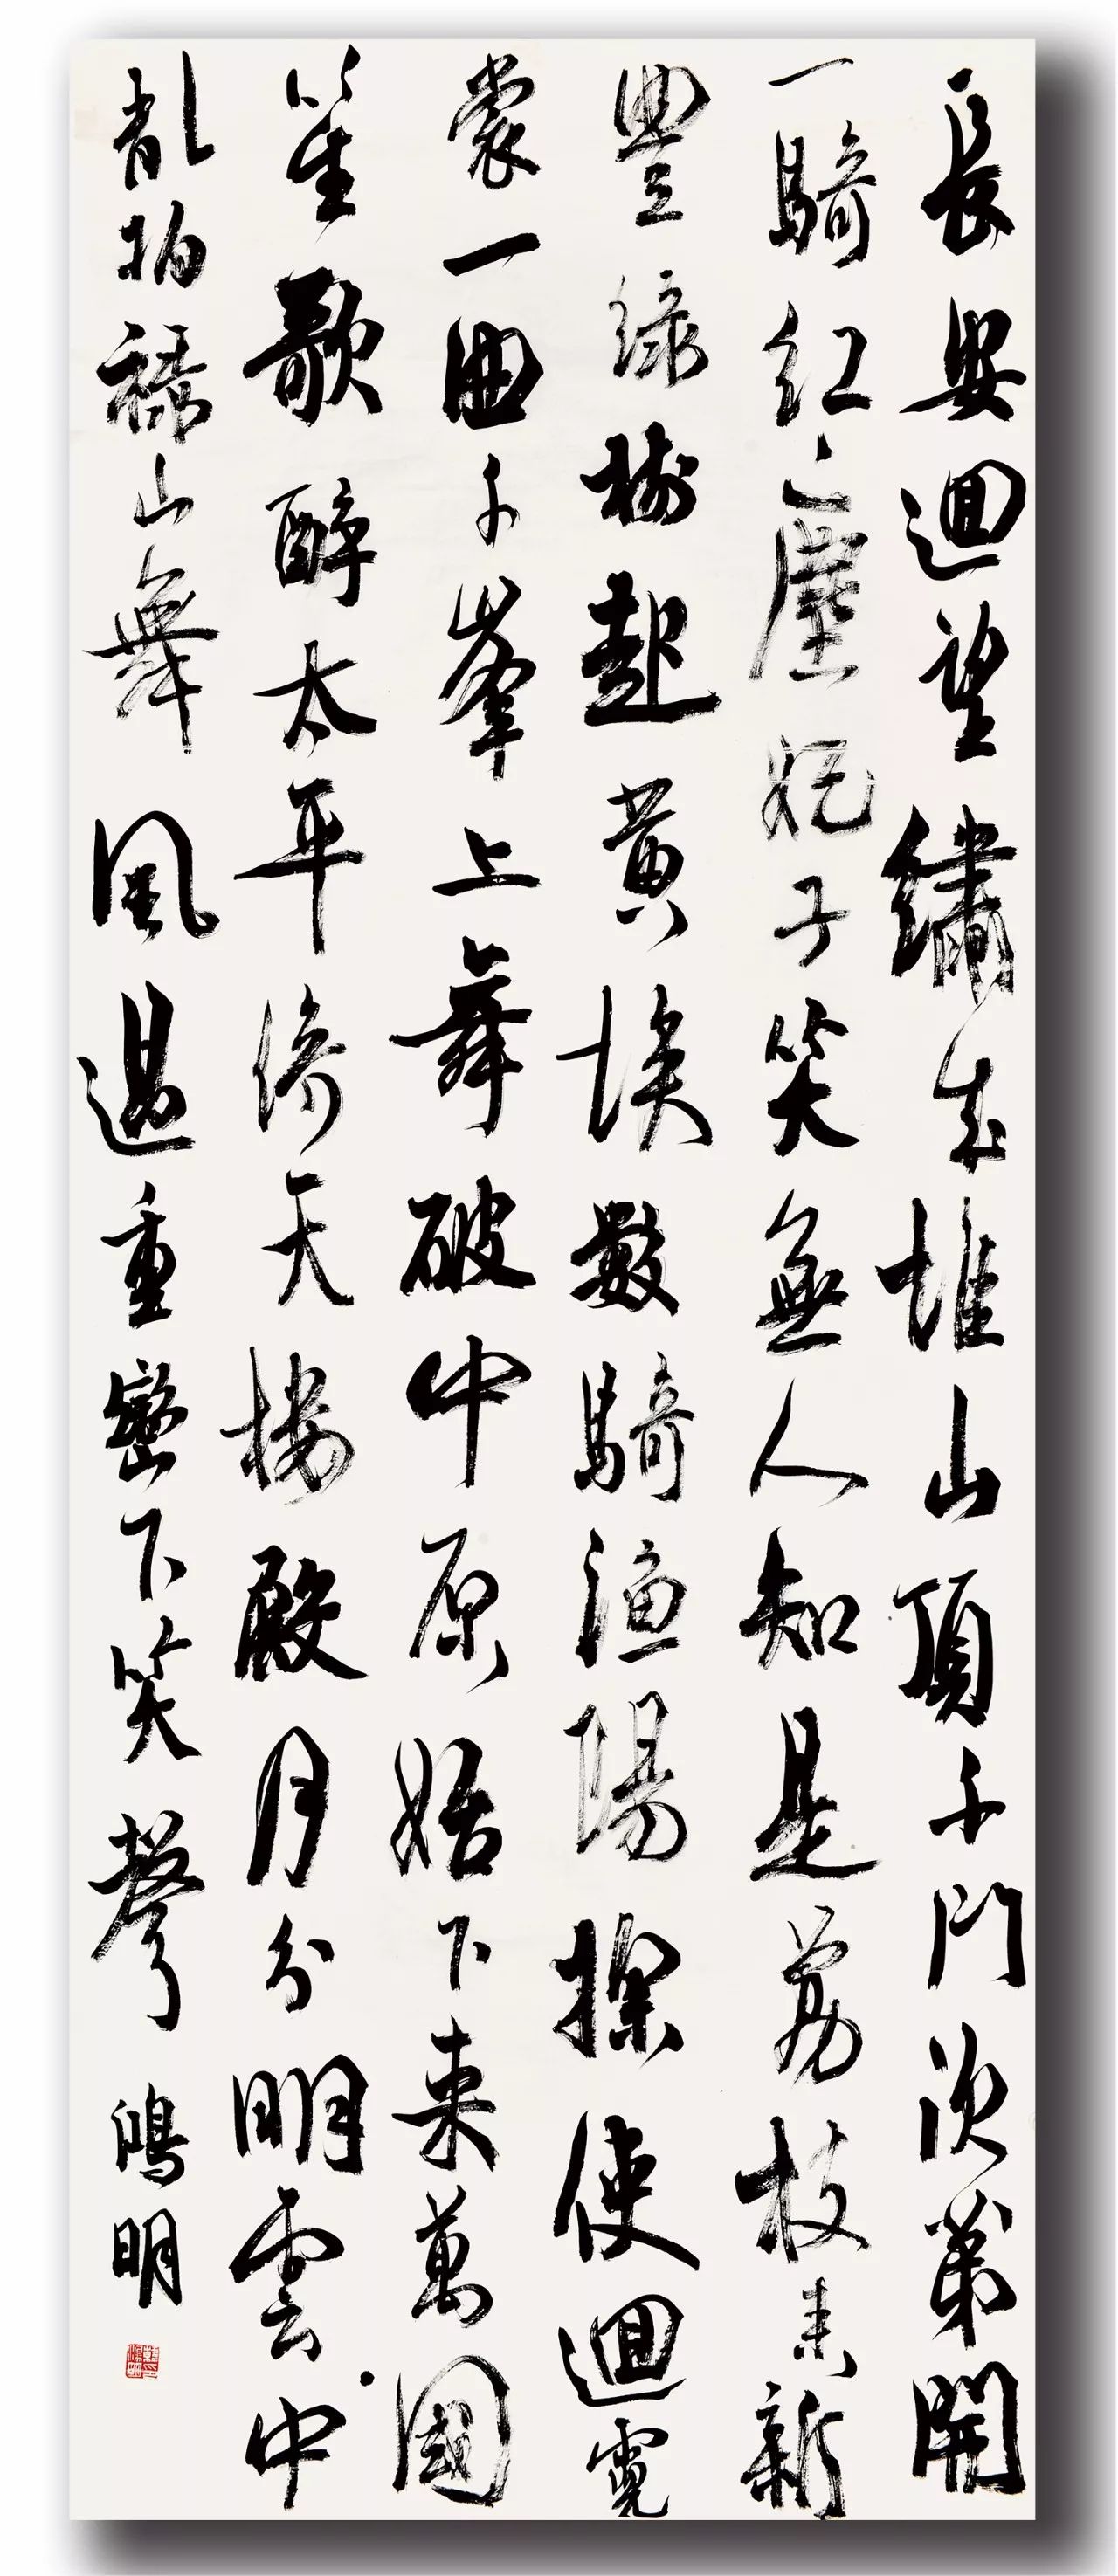 長安迴望繡成堆山頂千門次第開
一騎紅塵妃子笑無人知是荔枝来新
豐綠樹起黃埃數騎漁陽探使迴霓
裳一曲千峯上舞破中原始下来萬國
笙歌醉太平倚天樓殿月分明雲中
乱拍祿山舞風過重巒下笑聲 鴻明